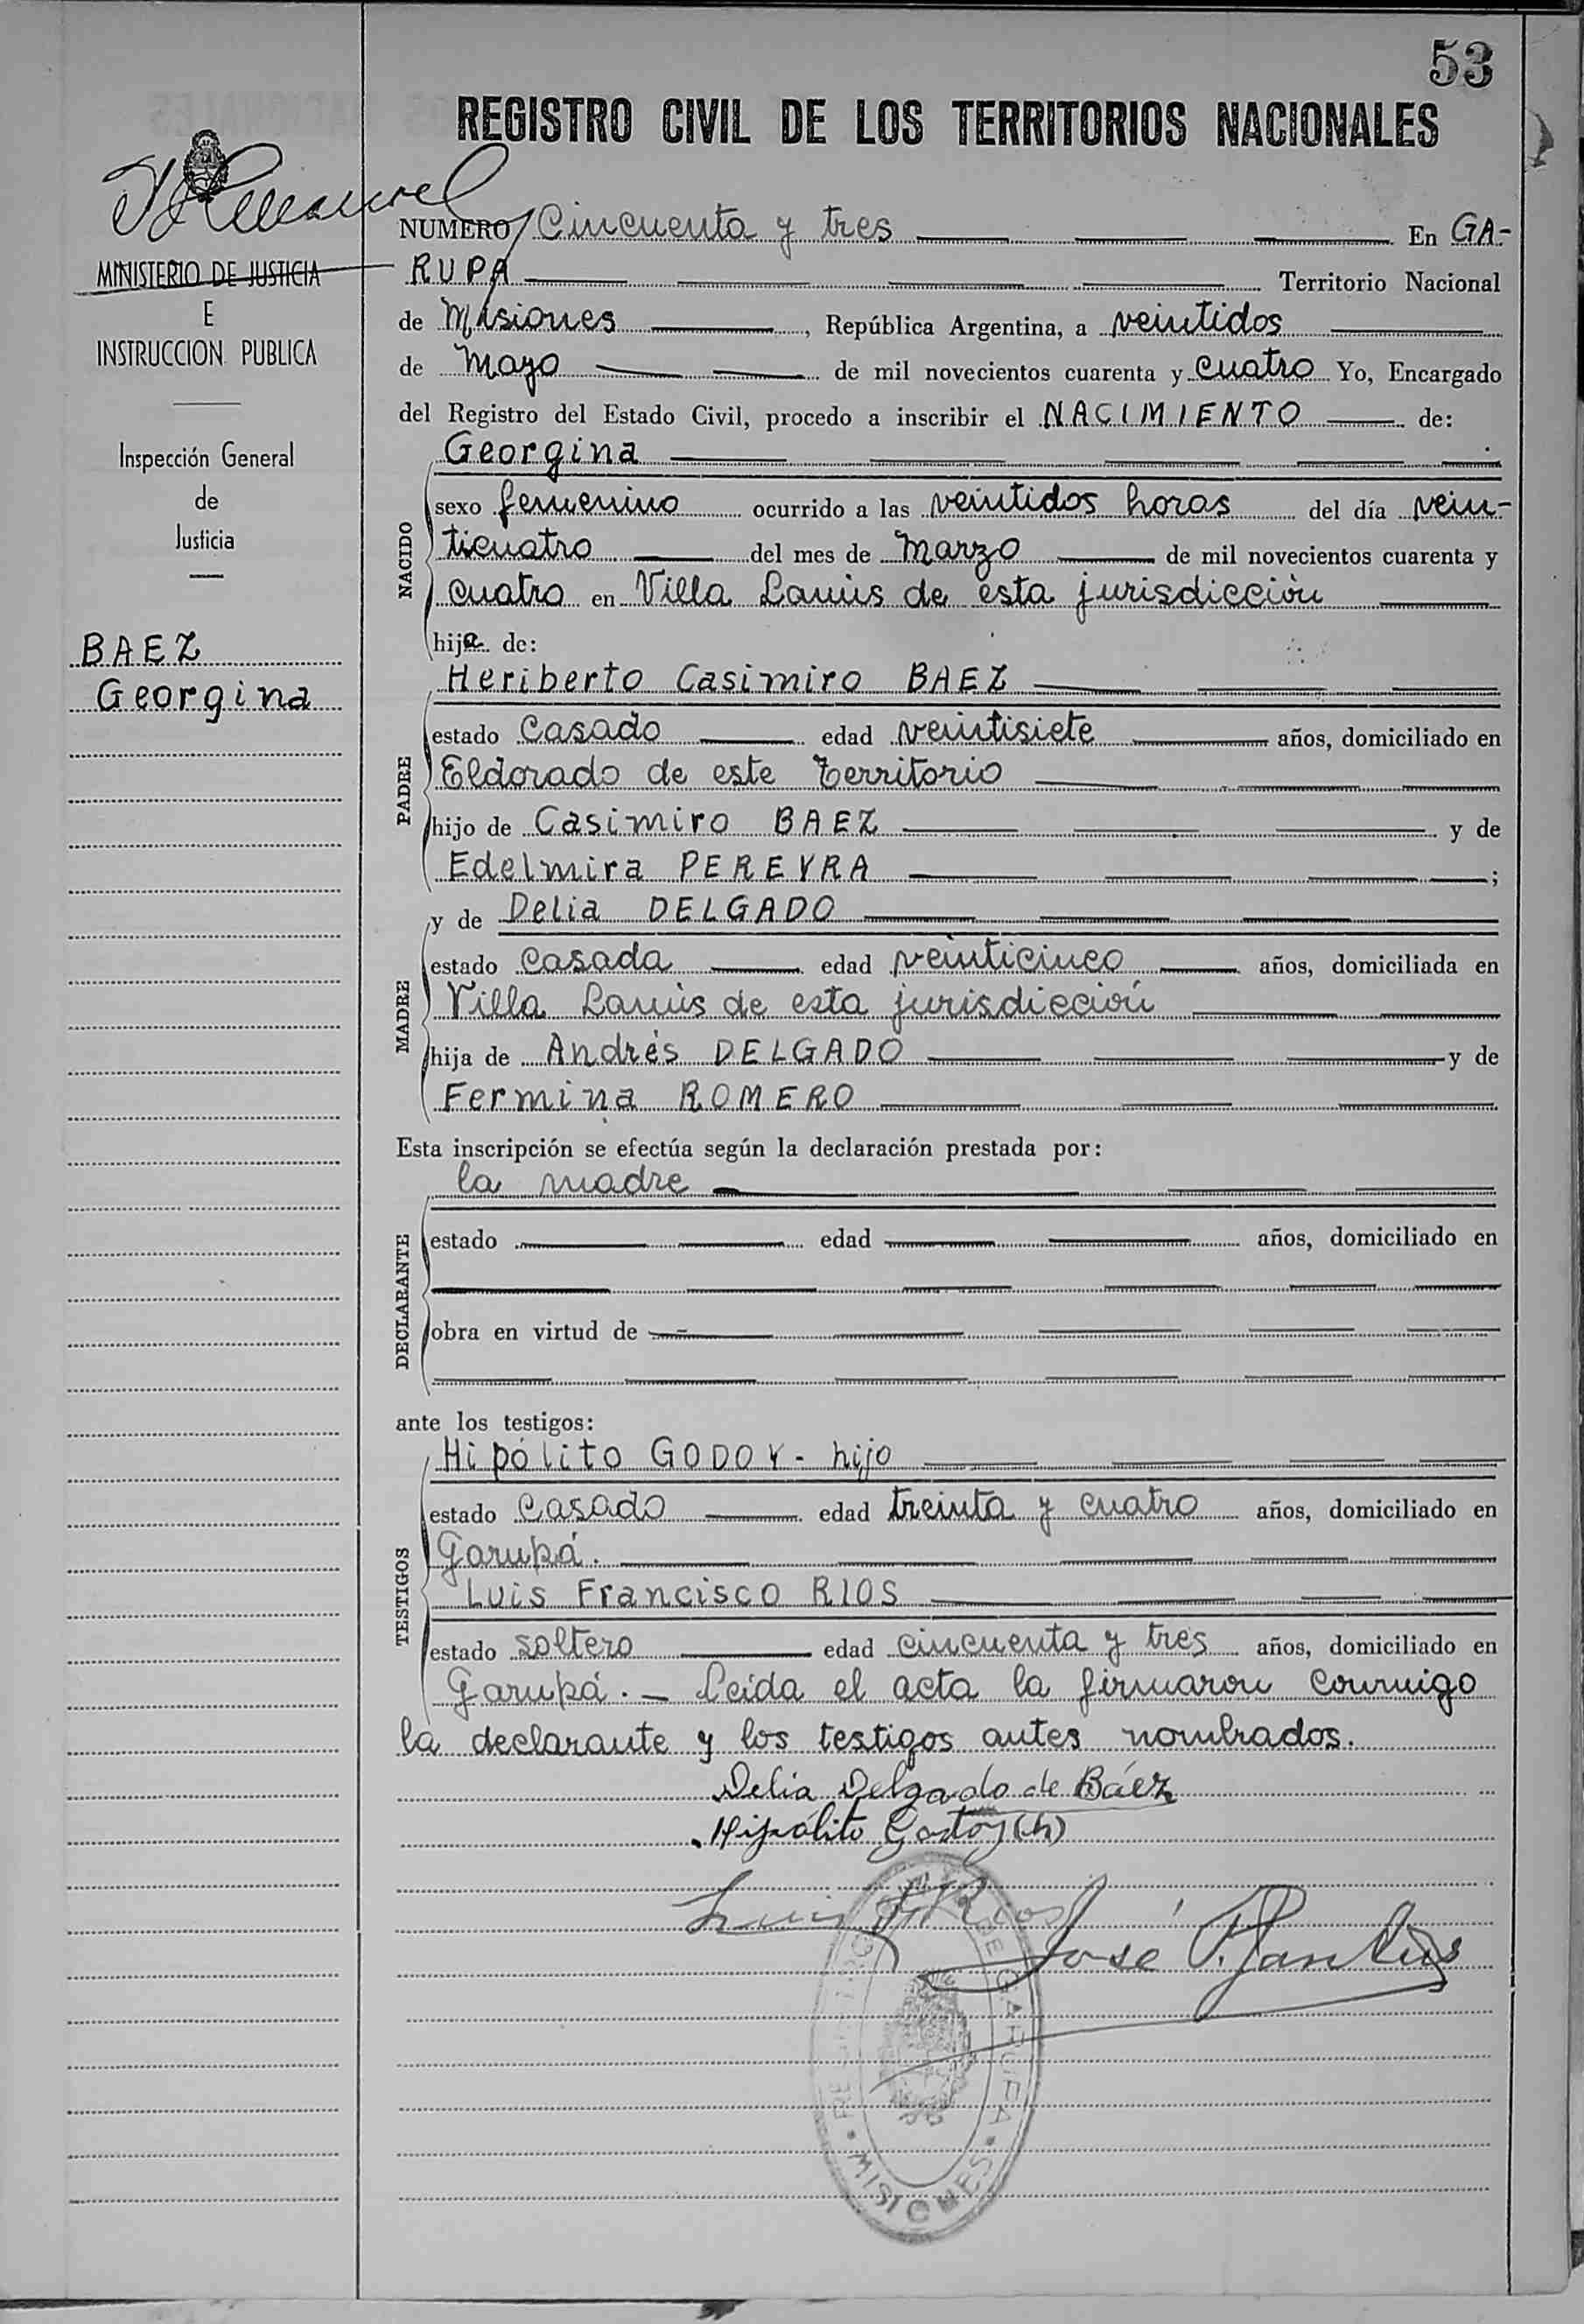 53
REGISTRO CIVIL DE LOS TERRITORIOS NACIONALES
MINISTERIO DE JUSTICIA
E
INSTRUCCION PUBLICA
Inspección General
de
Justicia
BAEZ
Georgina
NUMERO Cincuenta y tres En GA-
RUPA Territorio Nacional
de Misiones , República Argentina, a veintidos
de Mayo de mil novecientos cuarenta y cuatro Yo, Encargado
del Registro del Estado Civil, procedo a inscribir el NACIMIENTO de:
NACIDO
Georgina
sexo femenino ocurrido a las veintidos horas del día vein-
ticuatro del mes de Marzo de mil novecientos cuarenta y
cuatro en Villa Lanús de esta jurisdicción
hija de:
PADRE
Heriberto Casimiro BAEZ
estado Casado edad veintisiete años, domiciliado en
Eldorado de este Territorio
hijo de Casimiro BAEZ y de
Edelmira PEREYRA ;
MADRE
y de Delia DELGADO
estado casada edad veinticinco años, domiciliada en
Villa Lanús de esta jurisdicción
hija de Andrés DELGADO y de
Fermina ROMERO
Esta inscripción se efectúa según la declaración prestada por:
DECLARANTE
la madre
estado edad años, domiciliado en
obra en virtud de
ante los testigos:
TESTIGOS
Hipólito GODOY - hijo
estado Casado edad treinta y cuatro años, domiciliado en
Garupá.
Luis Francisco RIOS
estado soltero edad cincuenta y tres años, domiciliado en
Garupá. - Leída el acta la firmaron conmigo
la declarante y los testigos antes nombrados.
Delia Delgado de Báez
Hipólito Godoy (h)
Luis F. Rios
José
MISIONES